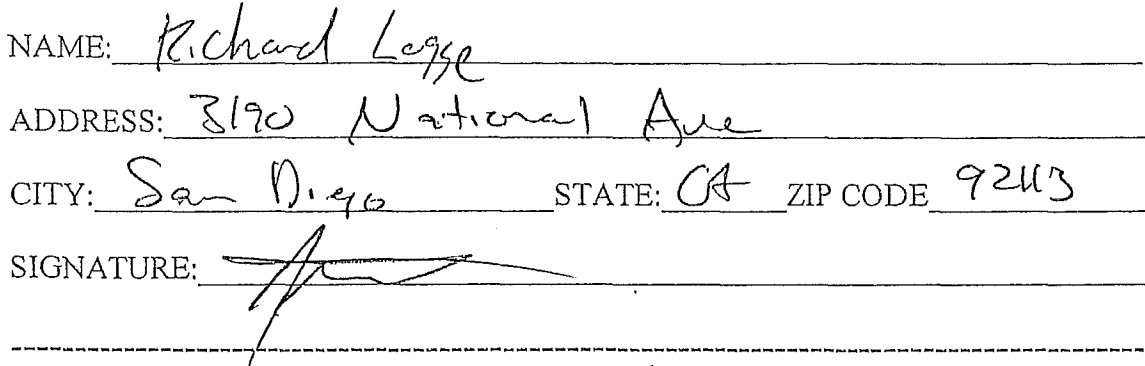 NAME: Richard Legge
ADDRESS: 3190 National Ave
CITY: San Diego STATE: CA ZIP CODE 92113
SIGNATURE: